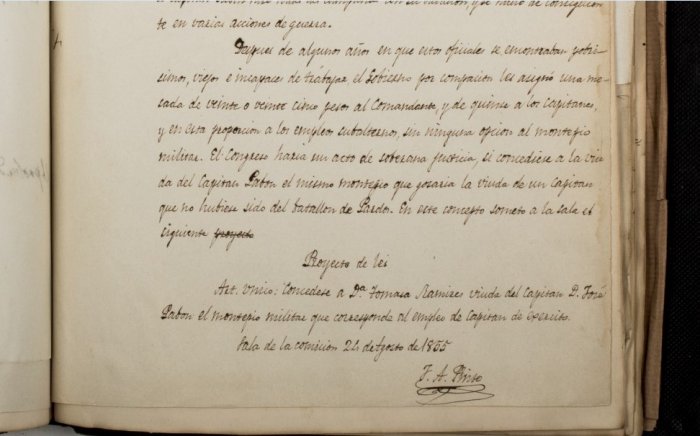 te en varias acciones de guerra.
Despues de algunos años en que estos oficiales se encontraban pobri-
simos, viejos e incapaces de trabajar el Gobierno por compasion les asignó una me-
sada de veinte o veinte cinco pesos al Comandante, y de quince a los capitanes,
y en esta proporcion a los empleos subalternos, sin ninguna opcion al montepio
militar. El Congreso haria un acto de soberana justicia, si concediese a la viu-
da del Capitan Pabon el mismo montepio que gosaria la viuda de un Capitan
que no hubiese sido del batallon de Pardos. En este concepto someto a la sala el
siguiente proyecto
Proyecto de lei
Art. Unico: Concedese a Da. Tomasa Ramires viuda del Capitan D. José
Pabon el montepio militar que corresponde al empleo de Capitan de Exercito.
Sala de la comision 24 de Agosto de 1855
F. A. Pinto